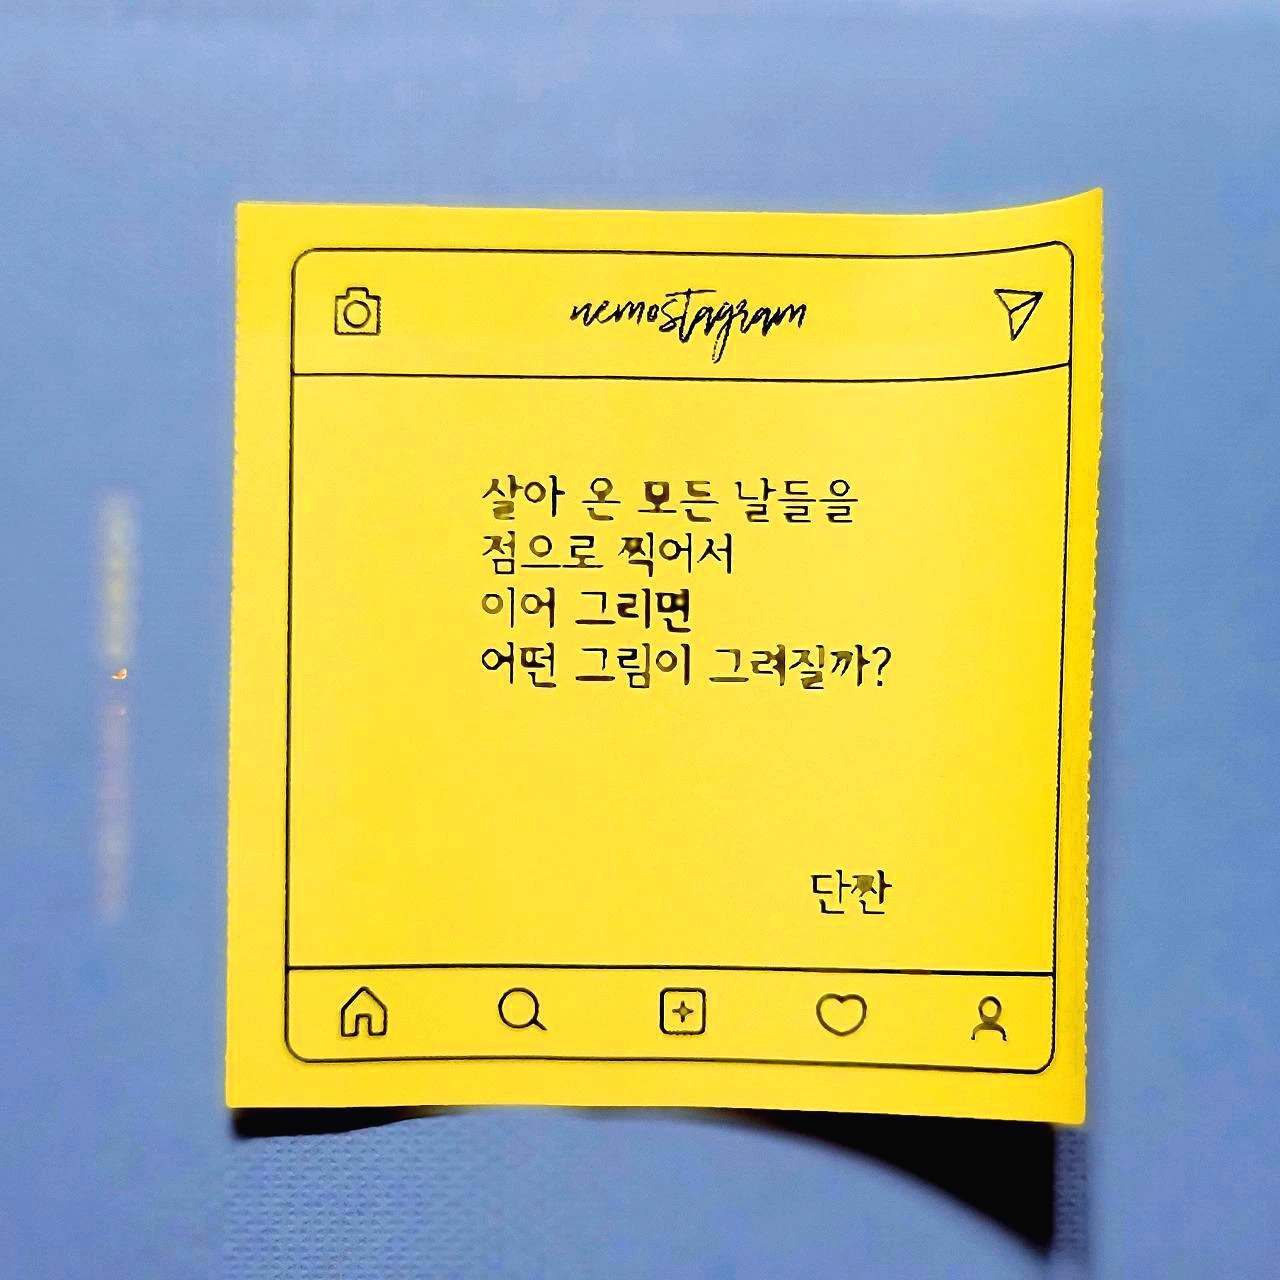 nemostagram
살아 온 모든 날들을
점으로 찍어서
이어 그리면
어떤 그림이 그려질까?
단짠